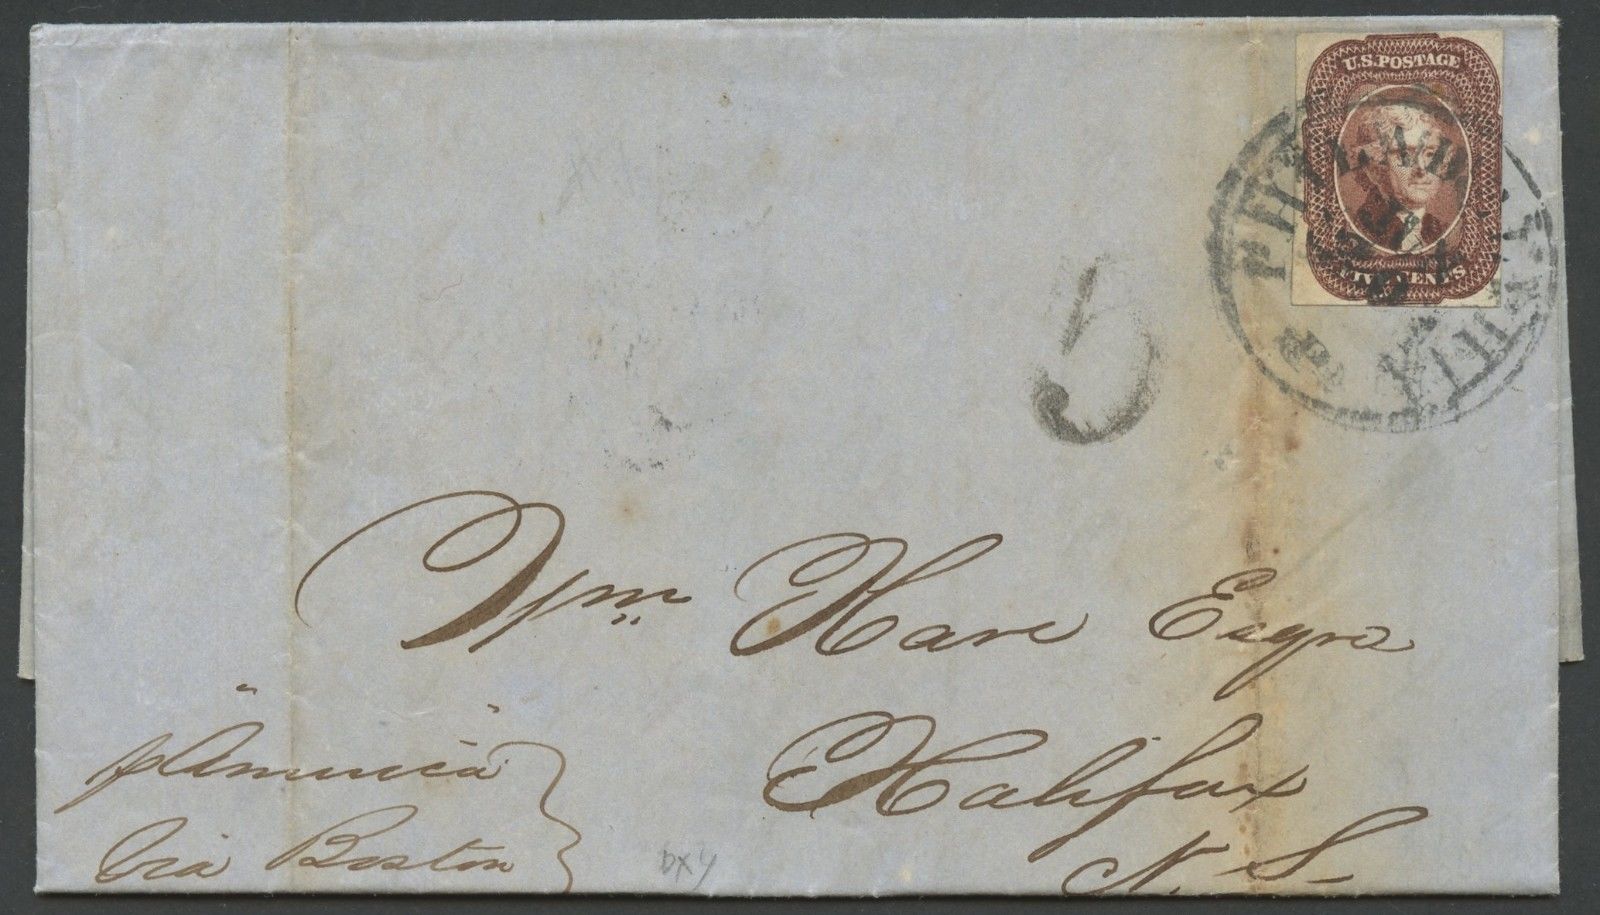 U.S. POSTAGE
FIVE CENTS
PHILADA
5
Wm. Hare Esqre
Halifax
N. S.
"
p America"
Via Boston
DXY